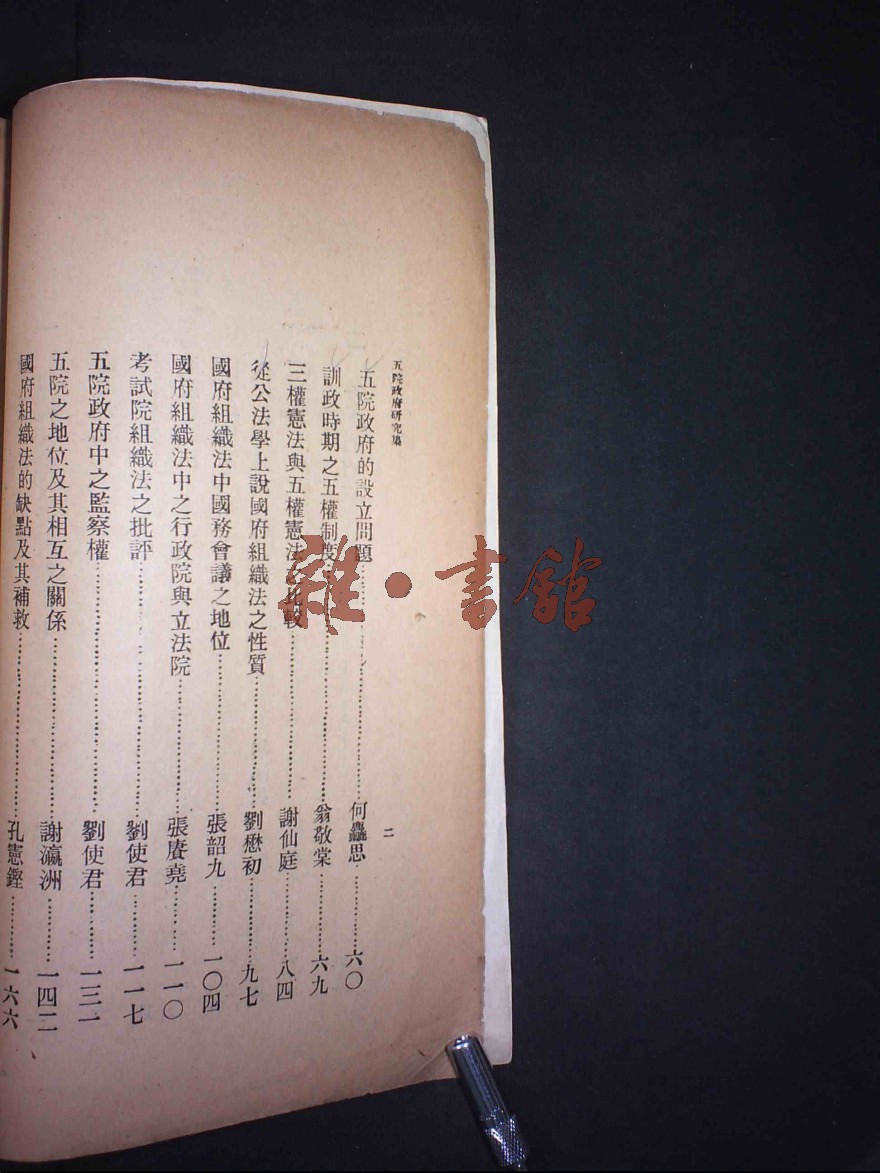 五院政府研究集
二
五院政府的設立問題……何蠡思……六〇
訓政時期之五權制度……翁敬棠……六九
三權憲法與五權憲法之比較……謝仙庭……八四
從公法學上說國府組織法之性質……劉懋初……九七
國府組織法中國務會議之地位……張韶九……一〇四
國府組織法中之行政院與立法院……張賡堯……一一〇
考試院組織法之批評……劉使君……一一七
五院政府中之監察權……劉使君……一三一
五院之地位及其相互之關係……謝瀛洲……一四二
國府組織法的缺點及其補救……孔憲鏗……一六六
雜·書館